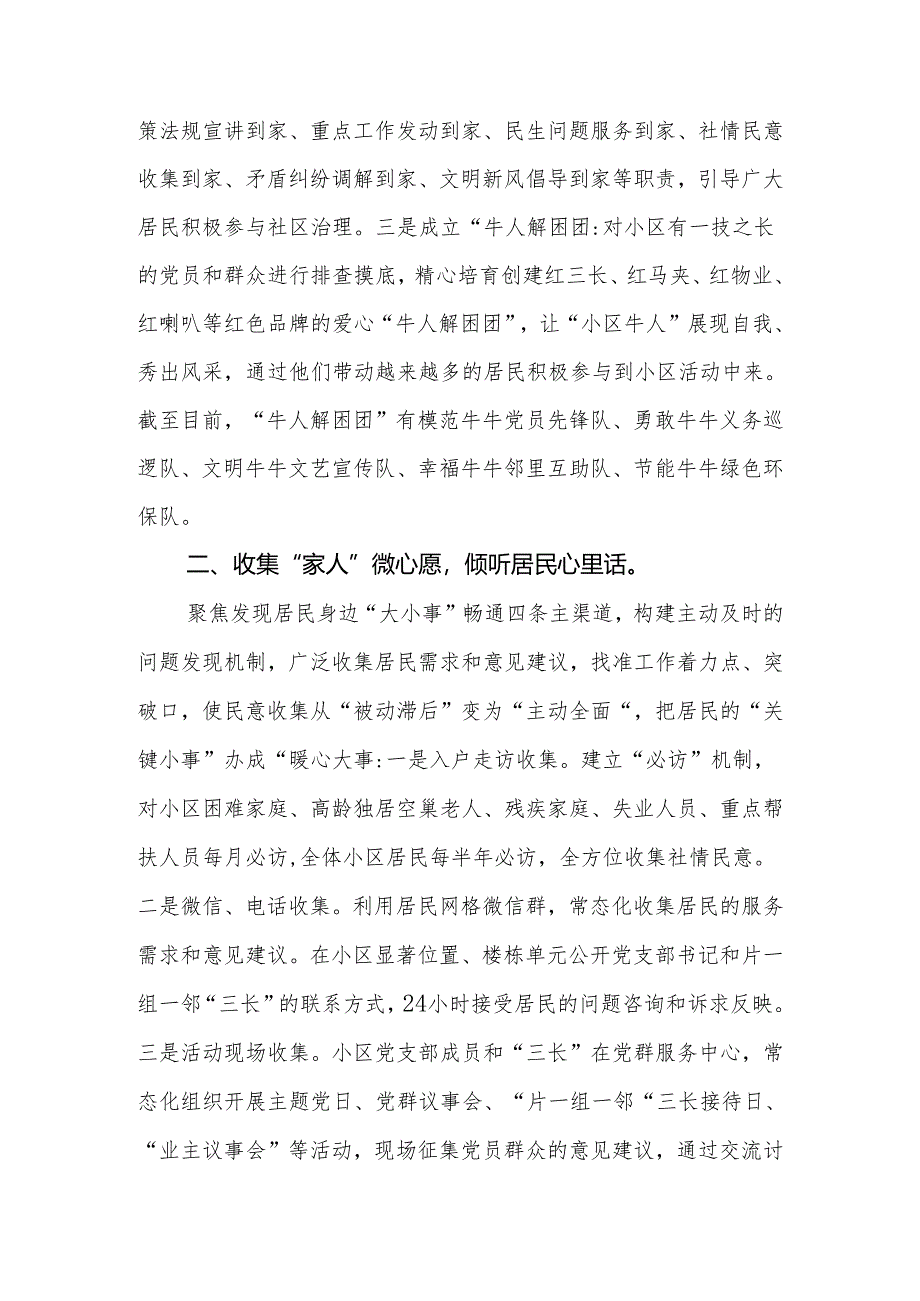 策法规宣讲到家、重点工作发动到家、民生问题服务到家、社情民意
收集到家、矛盾纠纷调解到家、文明新风倡导到家等职责，引导广大
居民积极参与社区治理。三是成立“牛人解困团:对小区有一技之长
的党员和群众进行排查摸底，精心培育创建红三长、红马夹、红物业、
红喇叭等红色品牌的爱心“牛人解困团”，让“小区牛人”展现自我、
秀出风采，通过他们带动越来越多的居民积极参与到小区活动中来。
截至目前，“牛人解困团”有模范牛牛党员先锋队、勇敢牛牛义务巡
逻队、文明牛牛文艺宣传队、幸福牛牛邻里互助队、节能牛牛绿色环
保队。
二、收集“家人”微心愿，倾听居民心里话。
聚焦发现居民身边“大小事”畅通四条主渠道，构建主动及时的
问题发现机制，广泛收集居民需求和意见建议，找准工作着力点、突
破口，使民意收集从“被动滞后”变为“主动全面“，把居民的“关
键小事”办成“暖心大事:一是入户走访收集。建立“必访”机制，
对小区困难家庭、高龄独居空巢老人、残疾家庭、失业人员、重点帮
扶人员每月必访,全体小区居民每半年必访，全方位收集社情民意。
二是微信、电话收集。利用居民网格微信群，常态化收集居民的服务
需求和意见建议。在小区显著位置、楼栋单元公开党支部书记和片一
组一邻“三长”的联系方式，24小时接受居民的问题咨询和诉求反映。
三是活动现场收集。小区党支部成员和“三长”在党群服务中心，常
态化组织开展主题党日、党群议事会、“片一组一邻“三长接待日、
“业主议事会”等活动，现场征集党员群众的意见建议，通过交流讨